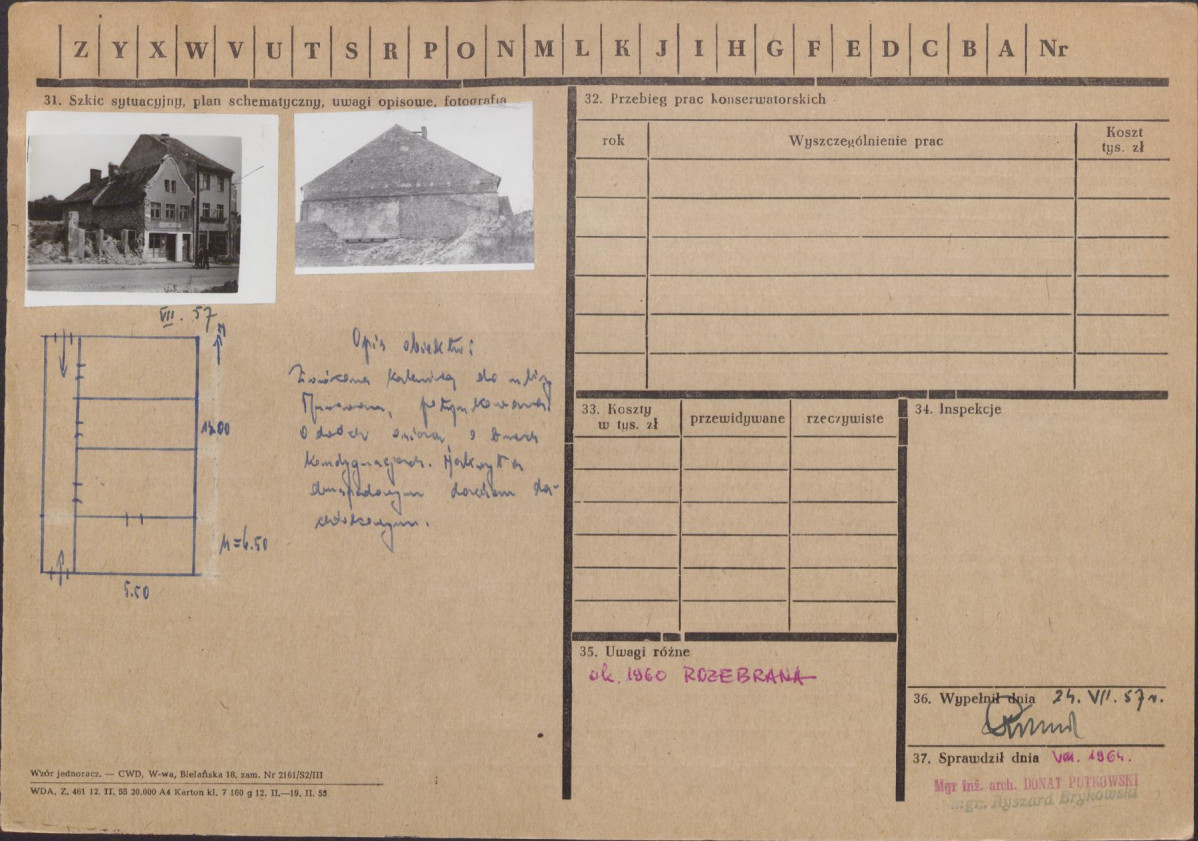 Z Y X W V U T S R P O N M L K J I H G F E D C B A Nr
31. Szkic sytuacyjny, plan schematyczny, uwagi opisowe, fotografia
VII. 57
N
12.00
H=6.50
5.50
Opis obiektu:
Zwrócona kalenicą do ulicy
Murowana, potynkowana.
O dwóch
kondygnacjach. Nakryta
dwuspadowym dachem da-
chówkowym.
Wzór jednoracz. — CWD, W-wa, Bielańska 18, zam. Nr 2161/S2/III
WDA, Z. 461 12. II. 55 20,000 A4 Karton kl. 7 160 g 12. II.—19. II. 55
32. Przebieg prac konserwatorskich
rok
Wyszczególnienie prac
Koszt
tys. zł
33. Koszty
w tys. zł
przewidywane
rzeczywiste
34. Inspekcje
35. Uwagi różne
ok. 1960 ROZEBRANA
36. Wypełnił dnia 24. VII. 57 r.
37. Sprawdził dnia VIII. 1964.
Mgr inż. arch. DONAT PUTKOWSKI
mgr. Ryszard Brykowski